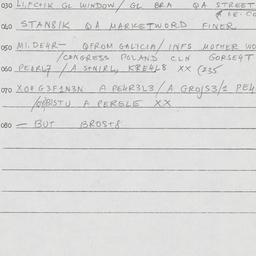 030 LI,FCHIK GL WINDOW / GL BRA QA STREET
040 STAN8IK QA MARKETWORD FINER
050 MI.DE4R— QFROM GALICIA / INFS MOTHER WO
/CONGRESS POLAND CLN GORSE4T
060 PE4RL7 / A S4NIRL, KRE4L8 XX (235
070 A PE4R3L3 / A GROJS3/2 PE4
A PERELE XX
080 — BUT BROST8